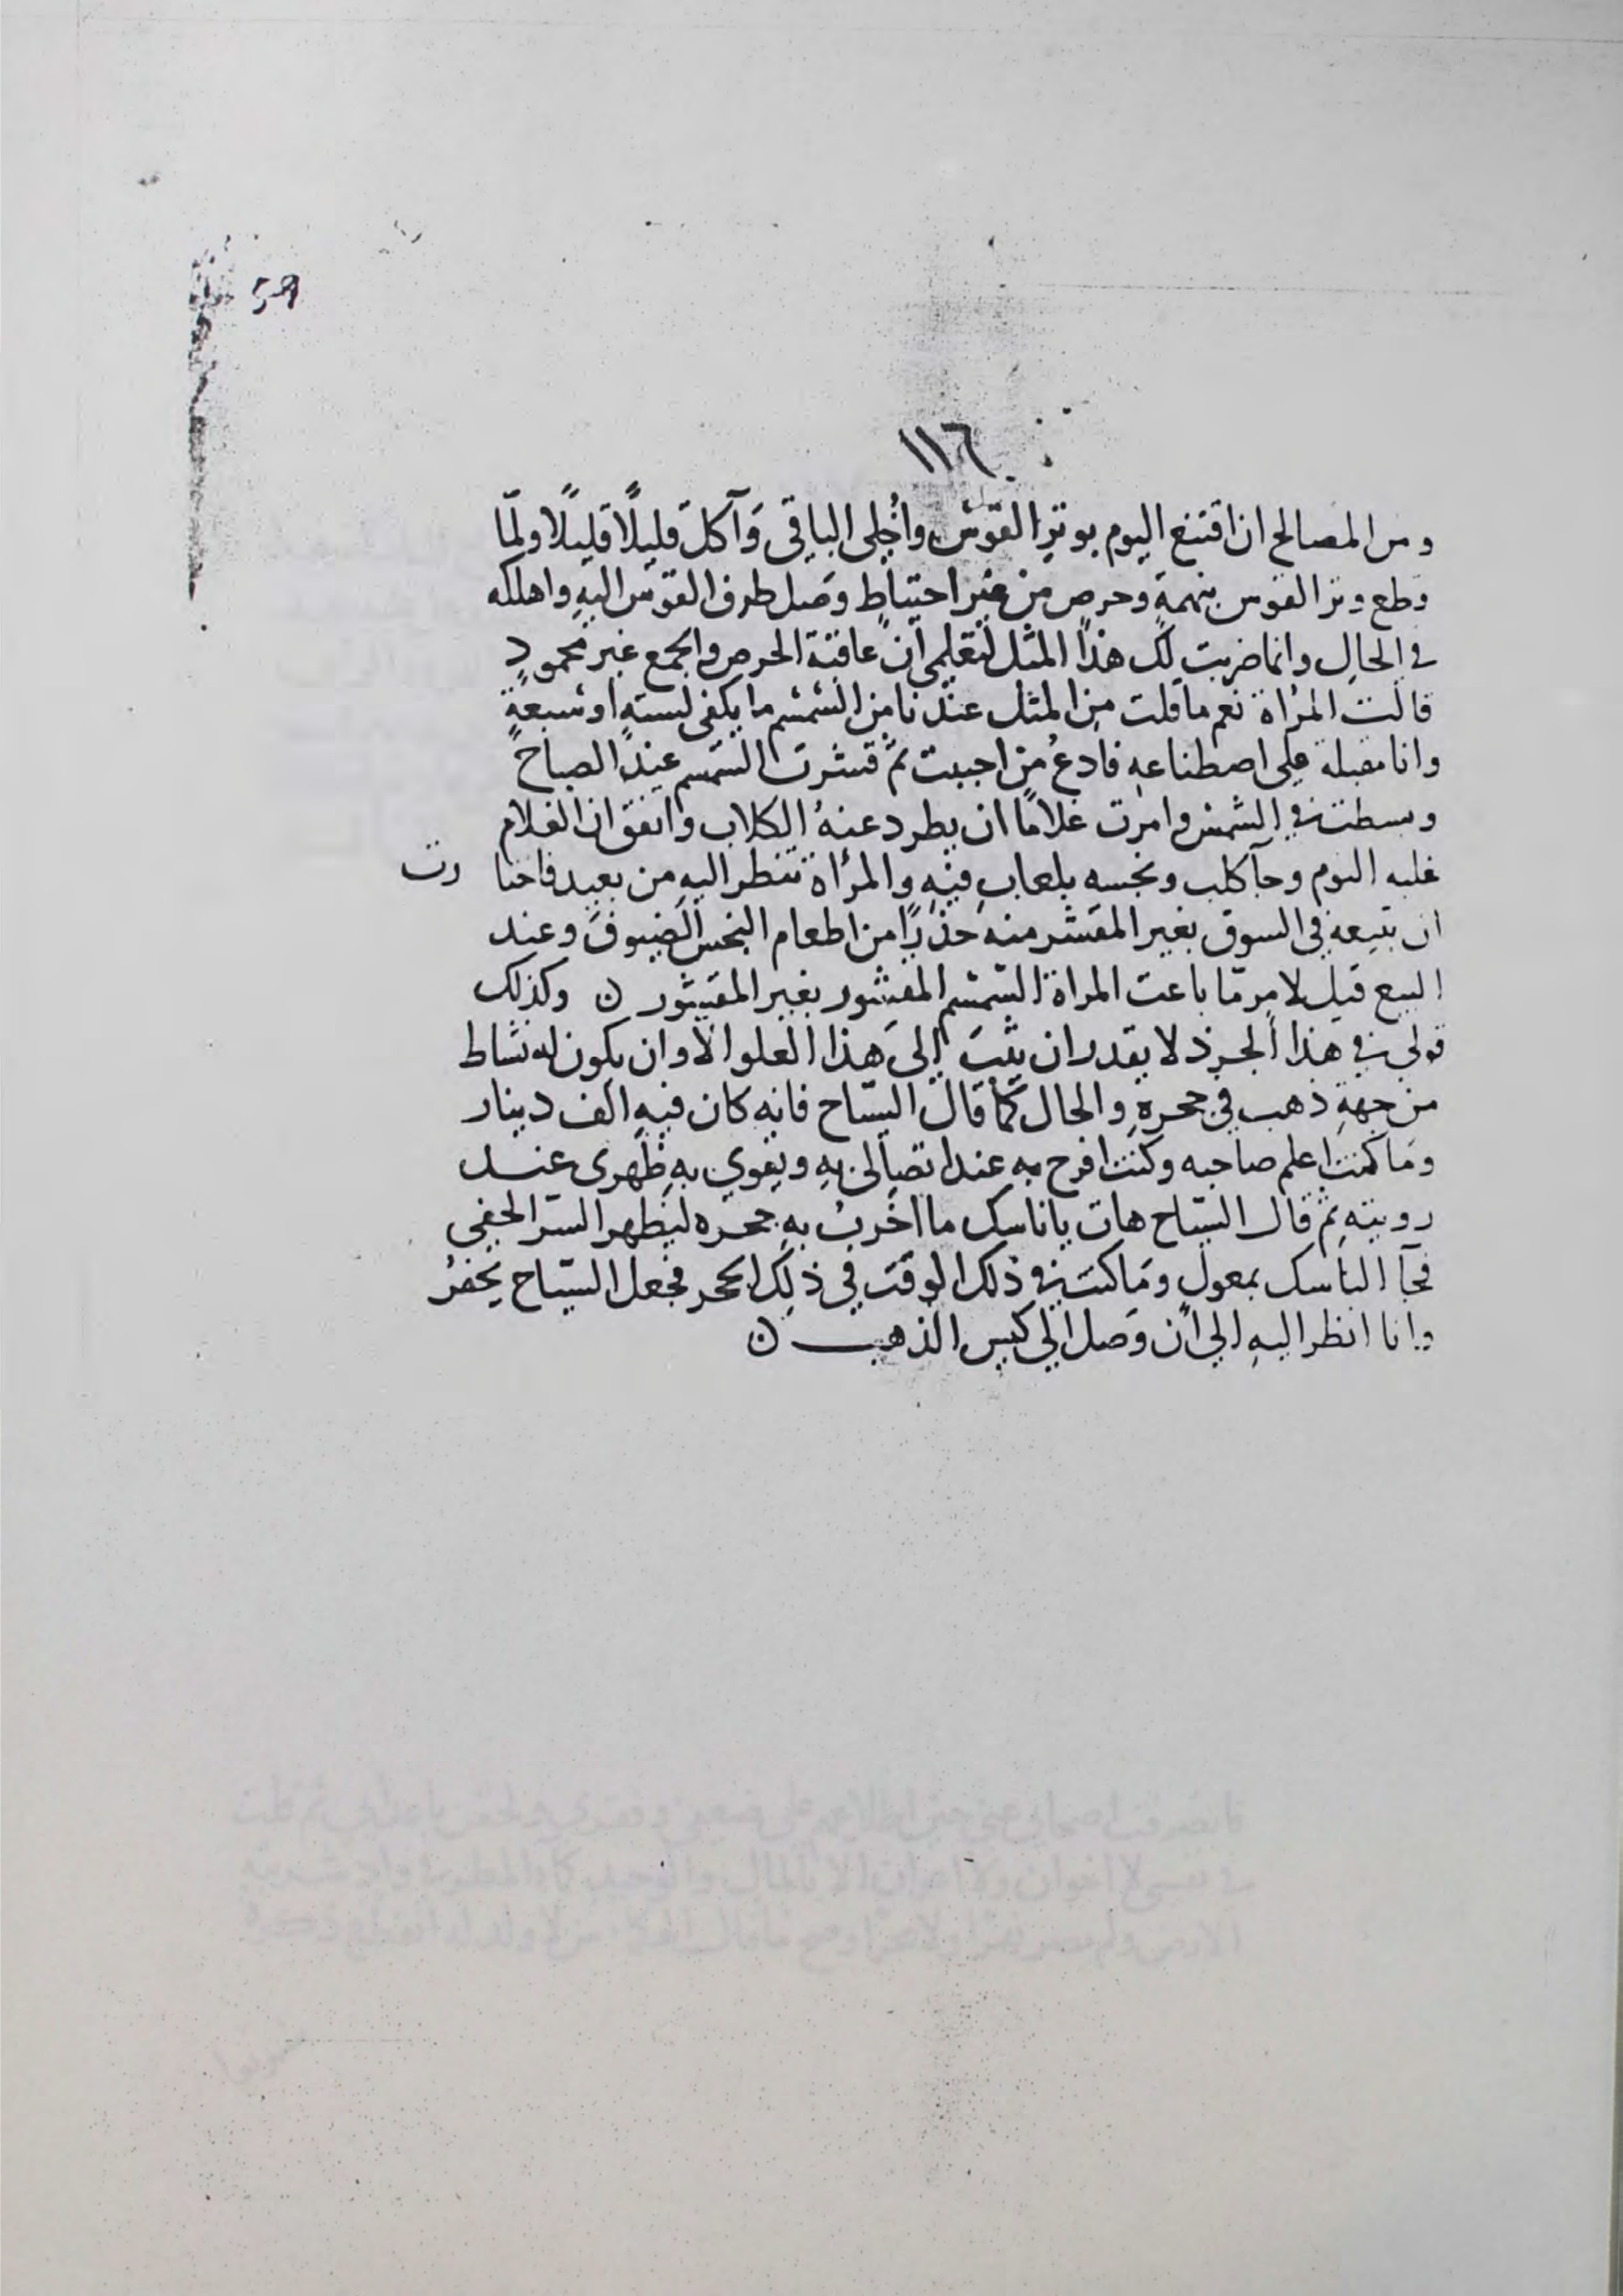 59
١١٦
ومن المصالح ان اقتنع اليوم بوتر القوس واُخلى الباقى وَآكلَ قليلًا قليلًا ولمّا
قطع وتر القوس بنهمةٍ وحرصٍ من غير احتياطٍ وصَل طرف القوس اليهِ واهلكه
في الحالِ وانما ضربت لكِ هذا المثل لتعلمى اَنّ عاقبة الحرص والجمع غير محمودٍ
قالت المرْاة نعم ما قلت مِن المثل عندنا مِن السّمسم ما يكفى لستةٍ او سَبعةٍ
وانا مقبلة على اصطناعهِ فادعُ مَن احببت ثمّ قشرت السّمسم عندَ الصباحِ
وبسطته في الشّمس وامرَت غلامًا ان يطرد عنهُ الكلاب واتفق ان الغلام
غلبه النوم وجآ كلب ونجسه بلعابِ فيهِ والمرْاة تنظر اليهِ من بعيد فاختارت
ان تبيعه في السوق بغير المقشر منه حَذرًا من اطعام النجس الضيوفَ وعند
البيع قيل لامرٍ مّا باعت المراة السّمسم المقشور بغير المقشور ن وكذلك
قولى في هذا الجرذ لا يقدر ان يثبَ إلىَ هذا العلو الّا وان يكون له نشاط
من جهةِ ذهب في جحرهِ والحال كما قالَ السيّاح فانه كان فيهِ الف دينار
ومَا كنت اعلم صَاحبه وكنت افرح به عند اتصالى بهِ ويقوى بهِ ظهرى عند
رويته ثم قال السيّاح هات يا ناسك ما اخرِبُ به جحره ليظهر السّر الخفي
فجآ الناسك بمعولٍ ومَا كنت في ذلك الوقت في ذلِك الجحر فجعل السيّاح يحفرُ
وانا انظر اليهِ الى اَن وَصل الى كيس الذهب ن